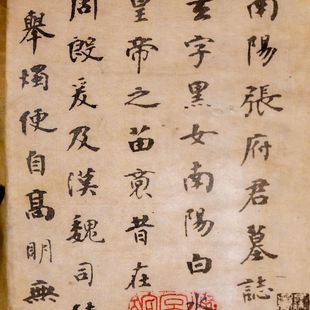 南陽張府君墓誌
玄字黑女南陽白水
皇帝之苗裔昔在
周殷爰及漢魏司徒
舉燭便自高明無